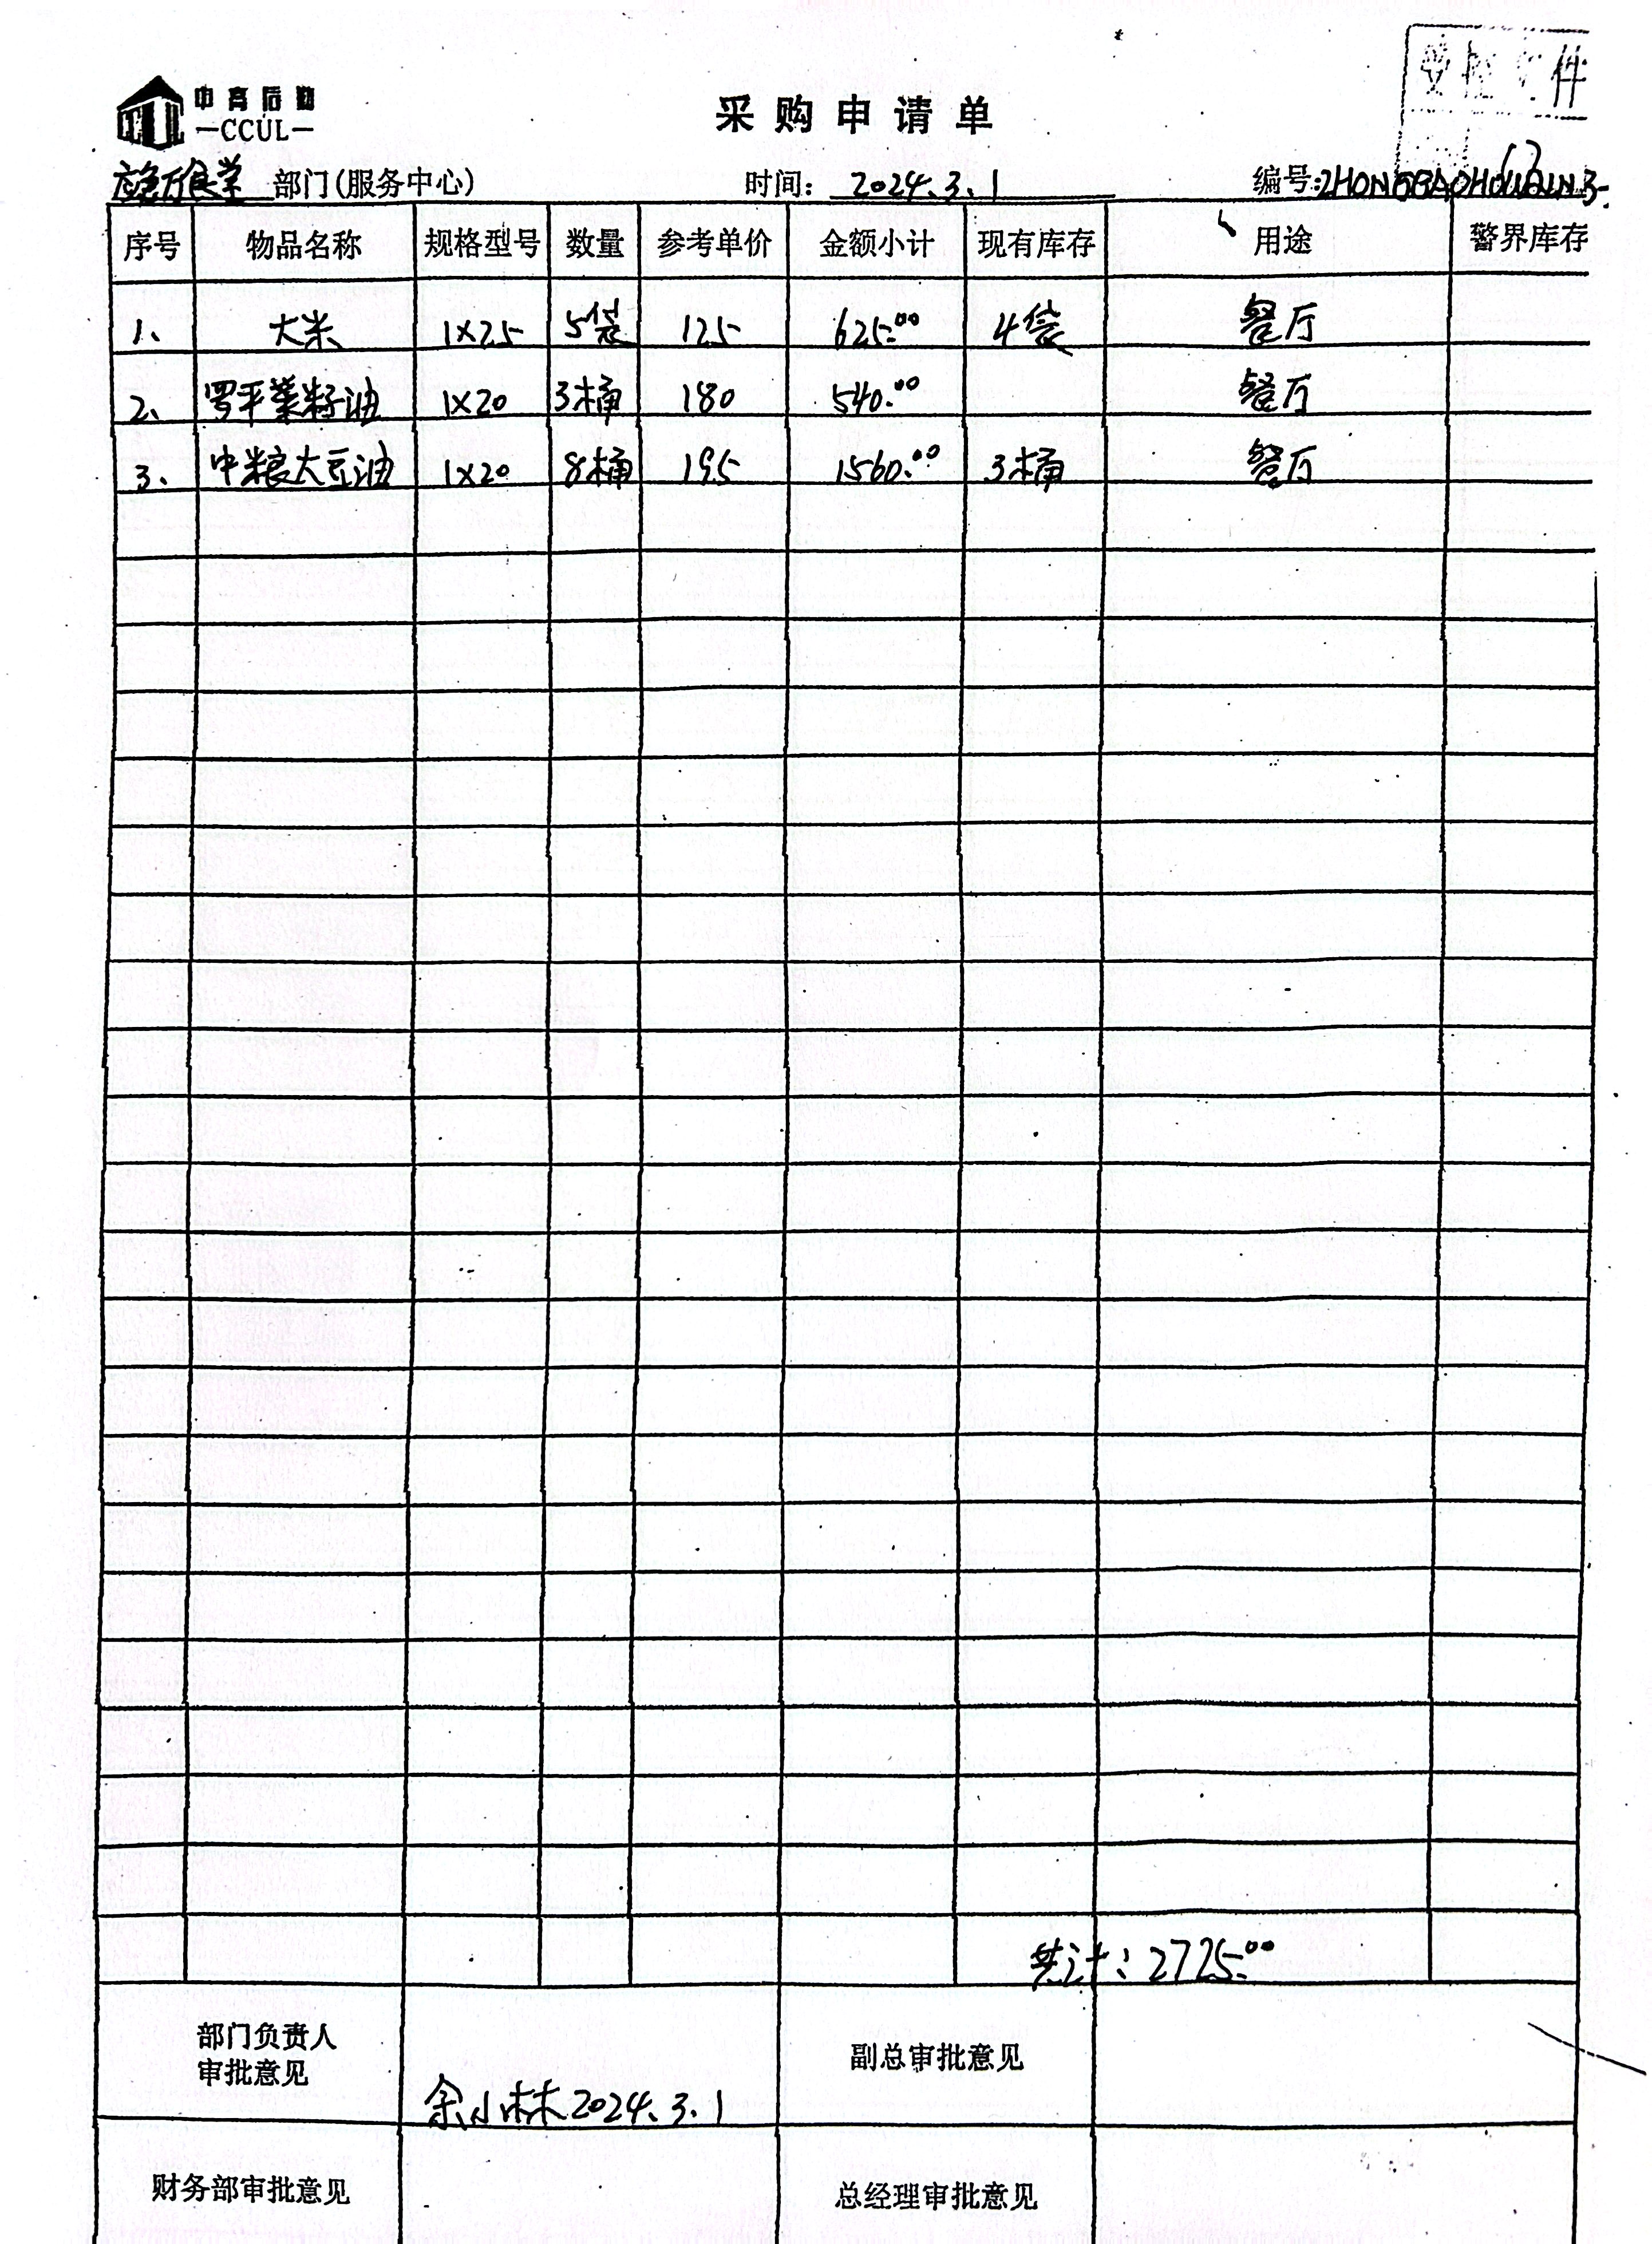 中育后勤
—CCUL—
采购申请单
应急厅食堂 部门(服务中心) 时间: 2024.3.1 编号:
序号 物品名称 规格型号 数量 参考单价 金额小计 现有库存 用途 警界库存
1、 大米 1×25 5袋 125 625.00 4袋 餐厅
2、 罗平菜籽油 1×20 3桶 180 540.00 餐厅
3、 中粮大豆油 1×20 8桶 195 1560.00 3桶 餐厅
共计: 2725.00
部门负责人
审批意见
余小林 2024.3.1
副总审批意见
财务部审批意见
总经理审批意见